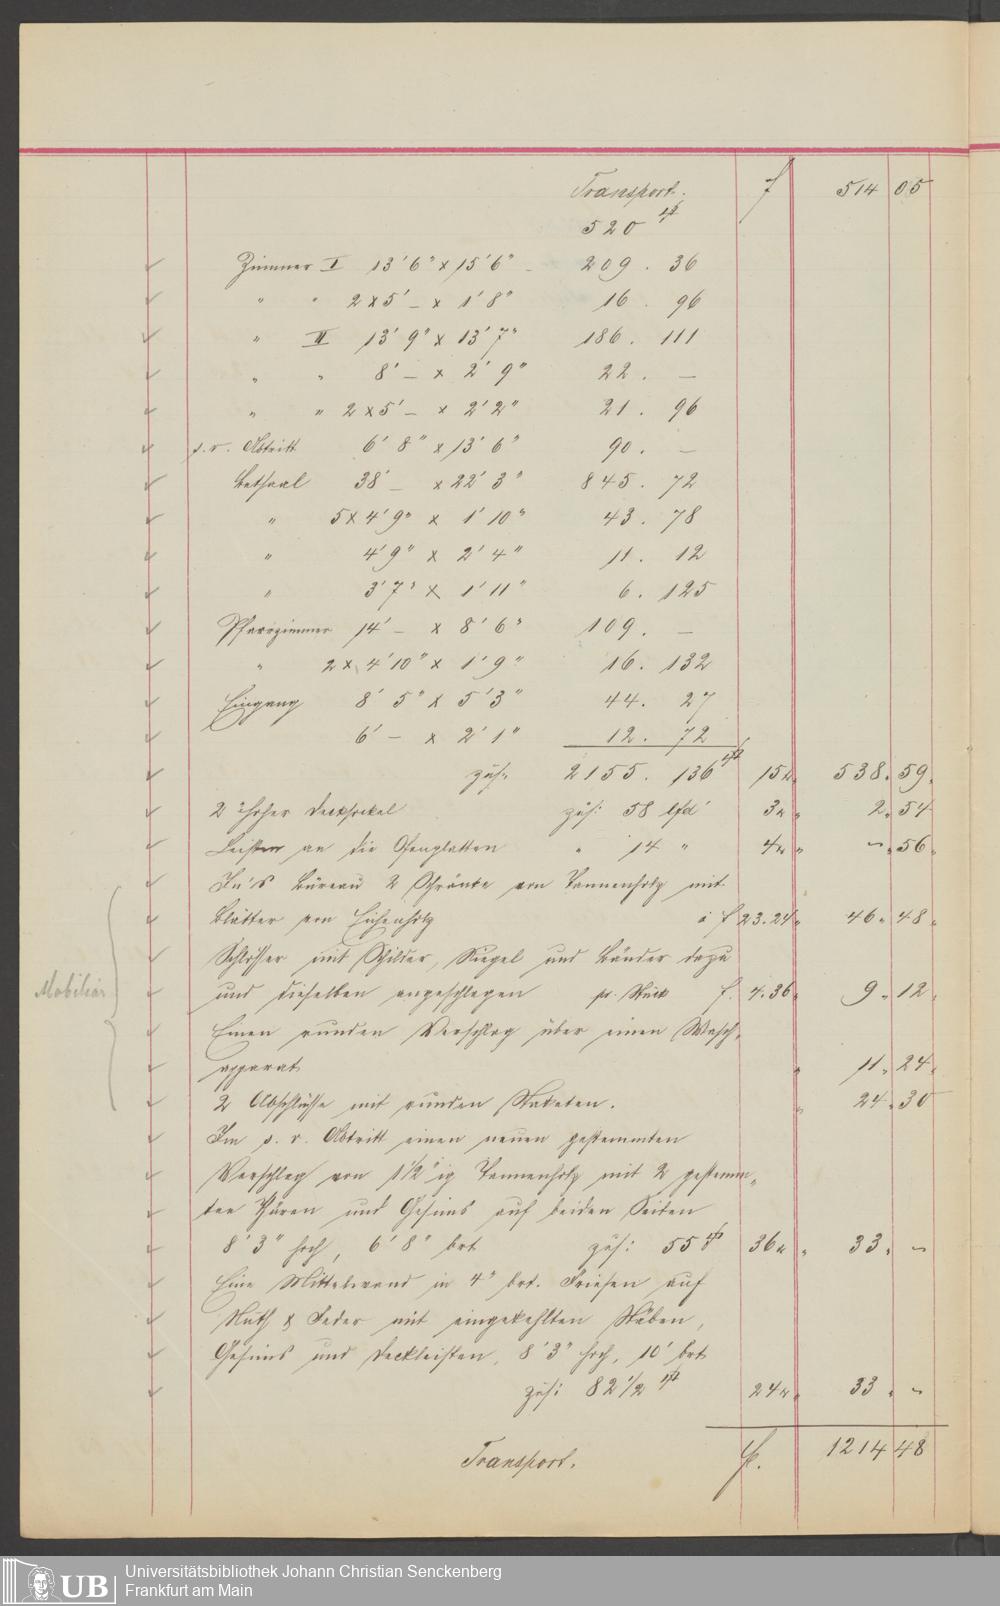 Transport. f 514 05
520 □'
Zimmer I 13'6" x 15'6" 209. 36
" " 2x5'– x 1'8" 16. 96
" II 13'9" x 13'7" 186. 111
" " 8'– x 2'9" 22. –
" " 2x5'– x 2'2" 21. 96
p. v. Abtritt 6'8" x 13'6" 90. –
Betsaal 38'– x 22'3" 845. 72
" 5x4'9" x 1'10" 43. 78
" 4'9" x 2'4" 11. 12
" 3'7" x 1'11" 6. 125
Pfarrzimmer 14'– x 8'6" 109. –
" 2x4'10" x 1'9" 16. 132
Eingang 8'5" x 5'3" 44. 27
6'– x 2'1" 12. 72
zus: 2155. 136 □' 15x 538. 59.
2" hoher Decksockel zus: 58 lfd' 3x " 2. 54
Leisten an die Ofenplatten " 14 " 4x " –. 56.
In's Büreau 2 Schränke von Tannenholz mit
Blätter von Eichenholz à f 23.24 " 46. 48.
Schlösser mit Schilder, Riegel und Bänder dazu
und dieselben angeschlagen pr. Stück f. 4.36 " 9. 12.
Mobiliar
Einen runden Verschlag über einen Wasch-
apparat " 11. 24.
2 Abschlüsse mit runden Staketen. " 24. 30
Im p. v. Abtritt einen neuen gestemmten
Verschlag von 1 1/2" ig Tannenholz mit 2 gestemm-
ten Thüren und Gesims auf beiden Seiten
8'3" hoch, 6'8" brt zus: 55 □' 36x " 33. –
Eine Mittelwand in 4" brt. Friesen auf
Nuth & Feder mit eingekehlten Stäben,
Gesims und Deckleisten, 8'3" hoch, 10' brt
zus: 82 1/2 □' 24x " 33. –
Transport. f. 1214 48
UB Universitätsbibliothek Johann Christian Senckenberg
Frankfurt am Main